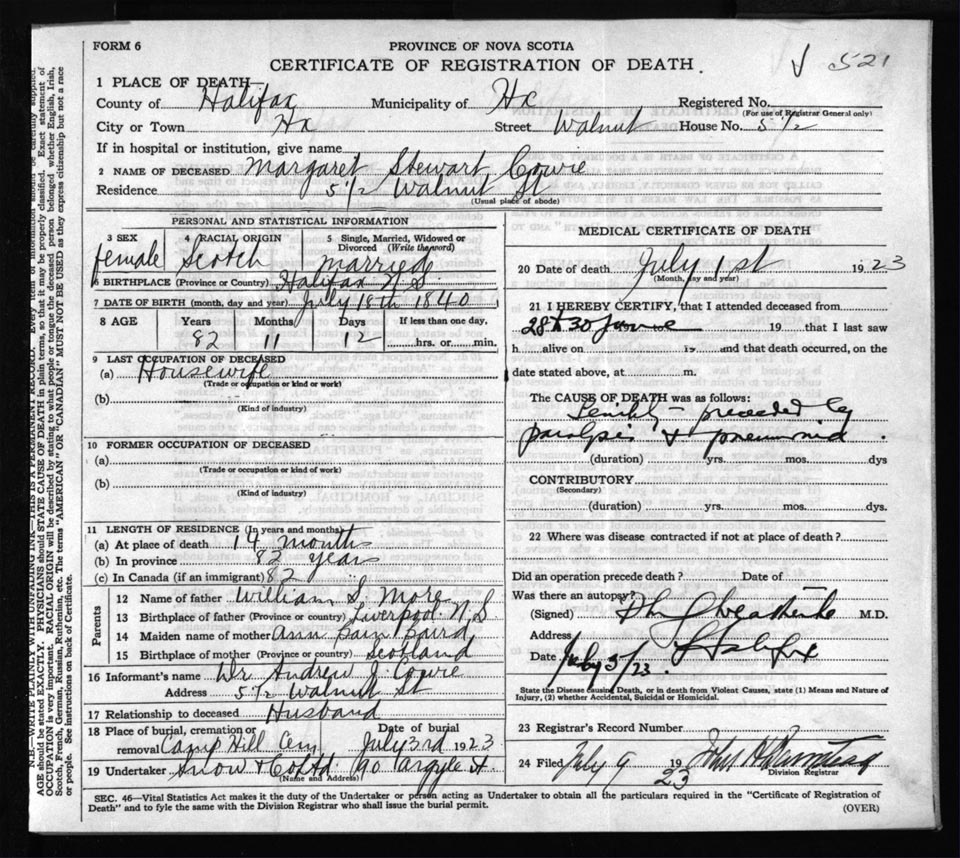 FORM 6
PROVINCE OF NOVA SCOTIA
CERTIFICATE OF REGISTRATION OF DEATH
√ 521
1 PLACE OF DEATH—
County of Halifax Municipality of Hx Registered No.
(For use of Registrar General only)
City or Town Hx Street Walnut House No. 5 1/2
If in hospital or institution, give name
2 NAME OF DECEASED Margaret Stewart Cowie
Residence 5 1/2 Walnut St
(Usual place of abode)
PERSONAL AND STATISTICAL INFORMATION
3 SEX female
4 RACIAL ORIGIN Scotch
5 Single, Married, Widowed or Divorced (Write the word) Married
6 BIRTHPLACE (Province or Country) Halifax N.S
7 DATE OF BIRTH (month, day and year) July 18th 1840
8 AGE Years Months Days If less than one day,
82 11 12 hrs. or min.
9 LAST OCCUPATION OF DECEASED
(a) Housewife
(Trade or occupation or kind or work)
(b)
(Kind of industry)
10 FORMER OCCUPATION OF DECEASED
(a)
(Trade or occupation or kind of work)
(b)
(Kind of industry)
11 LENGTH OF RESIDENCE (In years and months)
(a) At place of death 14 months
(b) In province 82 years
(c) In Canada (if an immigrant) 82 "
Parents
12 Name of father William S. More
13 Birthplace of father (Province or country) Liverpool N.S
14 Maiden name of mother Ann Baird
15 Birthplace of mother (Province or country) Scotland
16 Informant's name Dr Andrew J. Cowie
Address 5 1/2 Walnut St
17 Relationship to deceased Husband
18 Place of burial, cremation or removal Camp Hill Cem Date of burial July 3rd 1923
19 Undertaker Snow & Co Ltd 90 Argyle St
(Name and Address)
MEDICAL CERTIFICATE OF DEATH
20 Date of death July 1st 1923
(Month, day and year)
21 I HEREBY CERTIFY, that I attended deceased from
28 & 30 June 19 that I last saw
h alive on 19 and that death occurred, on the
date stated above, at m.
The CAUSE OF DEATH was as follows:
preceded by
paralysis & pneumonia
(duration) yrs. mos. dys
CONTRIBUTORY
(Secondary)
(duration) yrs. mos. dys.
22 Where was disease contracted if not at place of death?
Did an operation precede death? Date of
Was there an autopsy?
(Signed) M.D.
Address Halifax
Date July 5/23.
State the Disease causing Death, or in death from Violent Causes, state (1) Means and Nature of
Injury, (2) whether Accidental, Suicidal or Homicidal.
23 Registrar's Record Number
24 Filed July 9 1923 John
Division Registrar
SEC. 46—Vital Statistics Act makes it the duty of the Undertaker or person acting as Undertaker to obtain all the particulars required in the "Certificate of Registration of
Death" and to fyle the same with the Division Registrar who shall issue the burial permit.
(OVER)
N.B.—WRITE PLAINLY WITH UNFADING INK—THIS IS A PERMANENT RECORD. Every item of information should be carefully supplied.
AGE should be stated EXACTLY. PHYSICIANS should STATE CAUSE OF DEATH in plain terms, so that it may be properly classified. Exact statement of
OCCUPATION is very important. RACIAL ORIGIN will be described by stating to what people or tongue the deceased person belonged whether English, Irish,
Scotch, French, German, Russian, Ruthenian, etc. The terms "AMERICAN" OR "CANADIAN" MUST NOT BE USED as they express citizenship but not a race
or people. See instructions on back of Certificate.